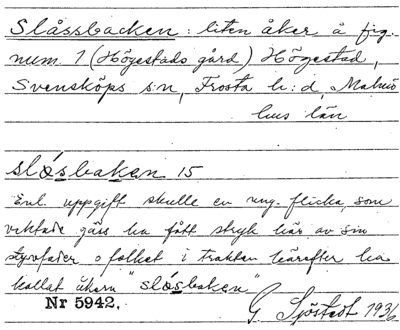 Slåssbacken: liten åker å fig.
num 1 (Högestads gård) Högestad,
Svensköps sn, Frosta h:d, Malmö
hus län
slósbakan 15
Enl. uppgift skulle en ung flicka, som
vaktade gäss ha fått stryk här av sin
styvfader o folket i trakten härefter ha
kallat åkern "slósbakan"
Nr 5942. G. Sjöstedt 1936